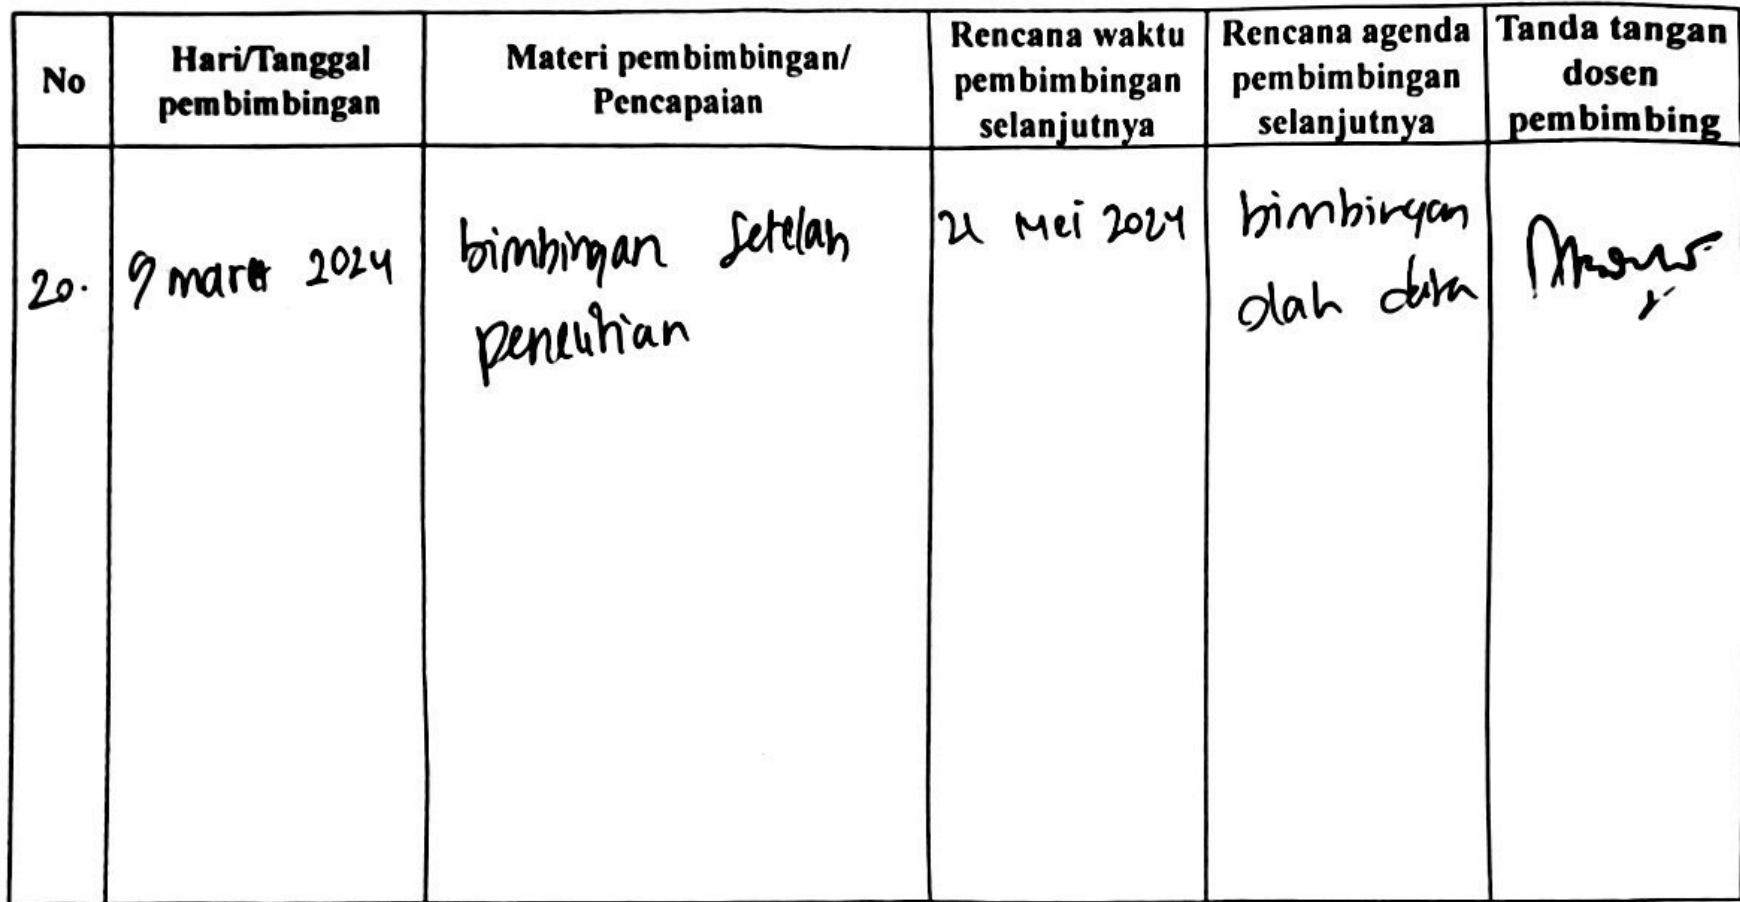 No
Hari/Tanggal
pembimbingan
Materi pembimbingan/
Pencapaian
Rencana waktu
pembimbingan
selanjutnya
Rencana agenda
pembimbingan
selanjutnya
Tanda tangan
dosen
pembimbing
20.
9 maret 2024
bimbingan setelah
penelitian
21 Mei 2024
bimbingan
olah data